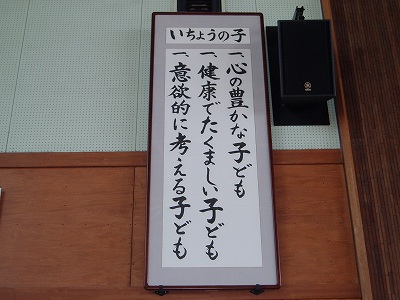 いちょうの子
一、心の豊かな子ども
一、健康でたくましい子ども
一、意欲的に考える子ども